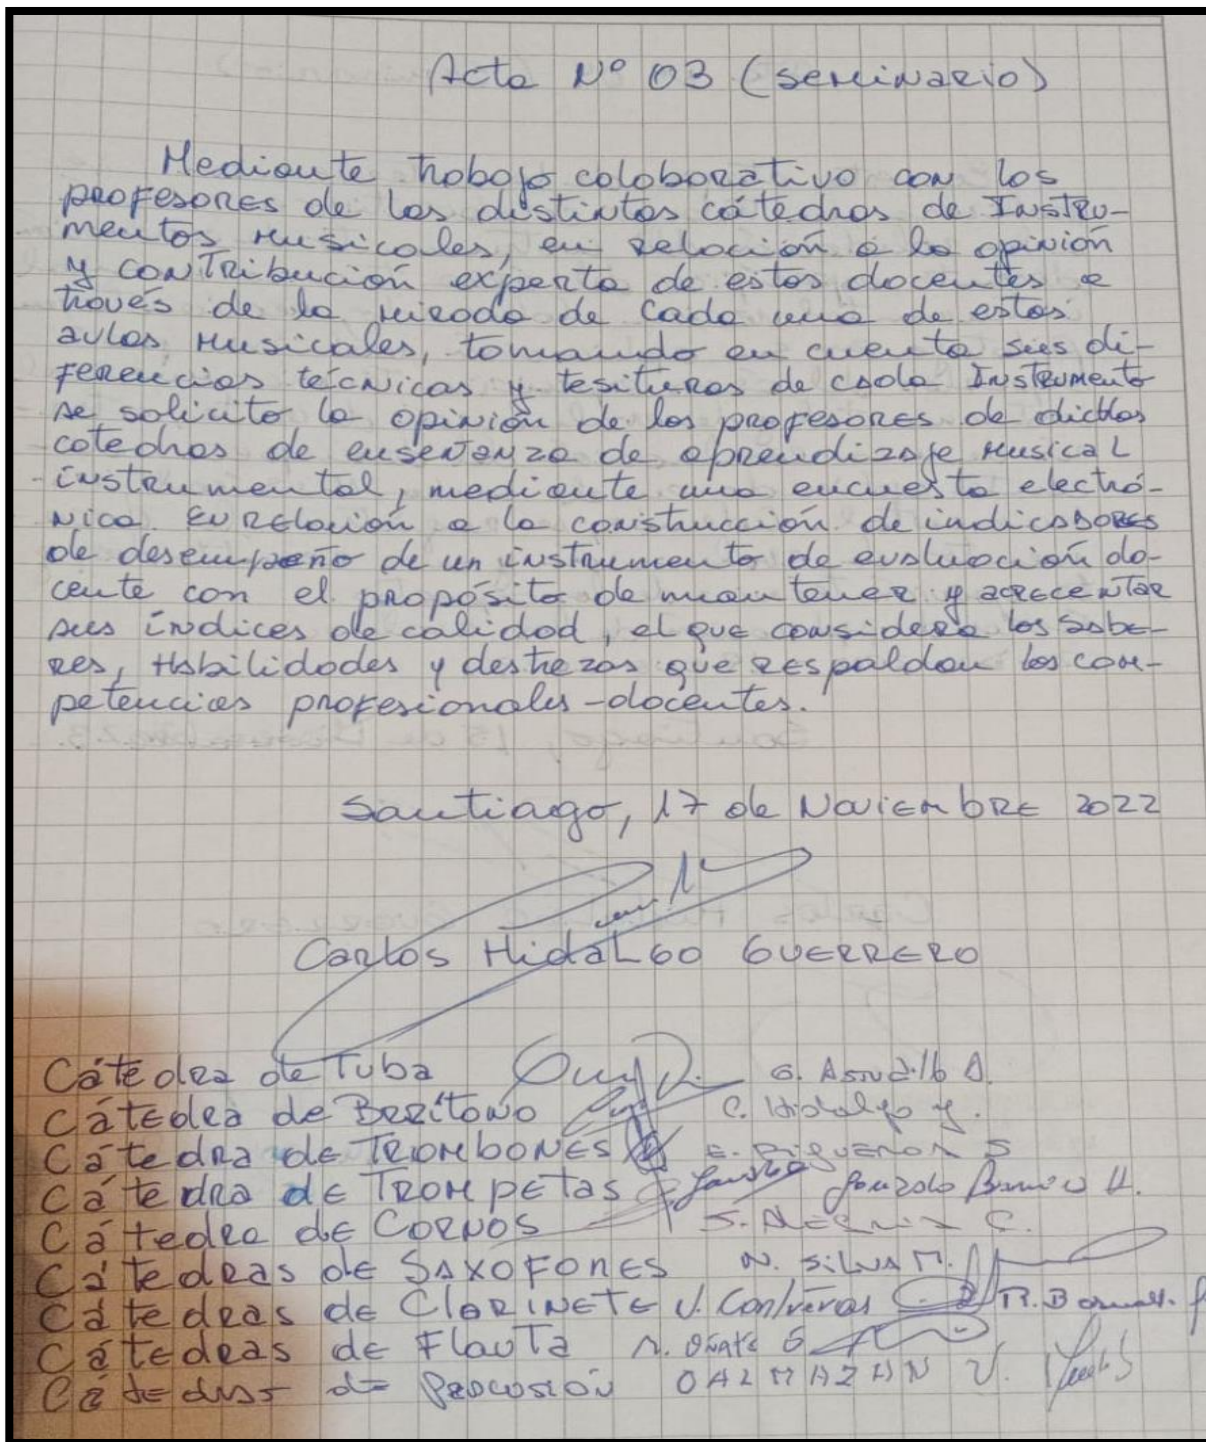 Acta Nº 03 (seminario)
Mediante trabajo colaborativo con los
profesores de las distintas cátedras de Instru-
mentos musicales, en relación a la opinión
y contribución experta de estos docentes a
través de la mirada de cada una de estas
aulas musicales, tomando en cuenta sus di-
ferencias técnicas y tesituras de cada Instrumento
se solicito la opinión de los profesores de dichas
catedras de enseñanza de aprendizaje musical
instrumental, mediante una encuesta electró-
nica. En relación a la construcción de indicadores
de desempeño de un instrumento de evaluación do-
cente con el propósito de mantener y acrecentar
sus índices de calidad, el que considera los sabe-
res, Habilidades y destrezas que respaldan las com-
petencias profesionales-docentes.
Santiago, 17 de Noviembre 2022
Carlos Hidalgo Guerrero
Cátedra de Tuba G. Astudillo
Cátedra de Barítono C. Hidalgo
Cátedra de Trombones E.
Cátedra de Trompetas Gonzalo
Cátedra de Cornos
Cátedras de Saxofones N. Silva M.
Cátedras de Clarinete V. Contreras R.
Cátedras de Flauta N. Oñate
Cátedras de Percusión O ALMAZAN V.